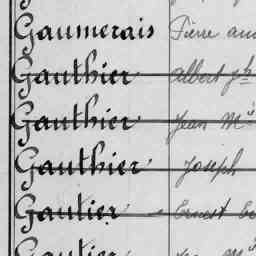 Gaumerais Pierre
Gauthier Albert Jh
Gauthier Jean M
Gauthier Joseph
Gautier Ernest
Gautier